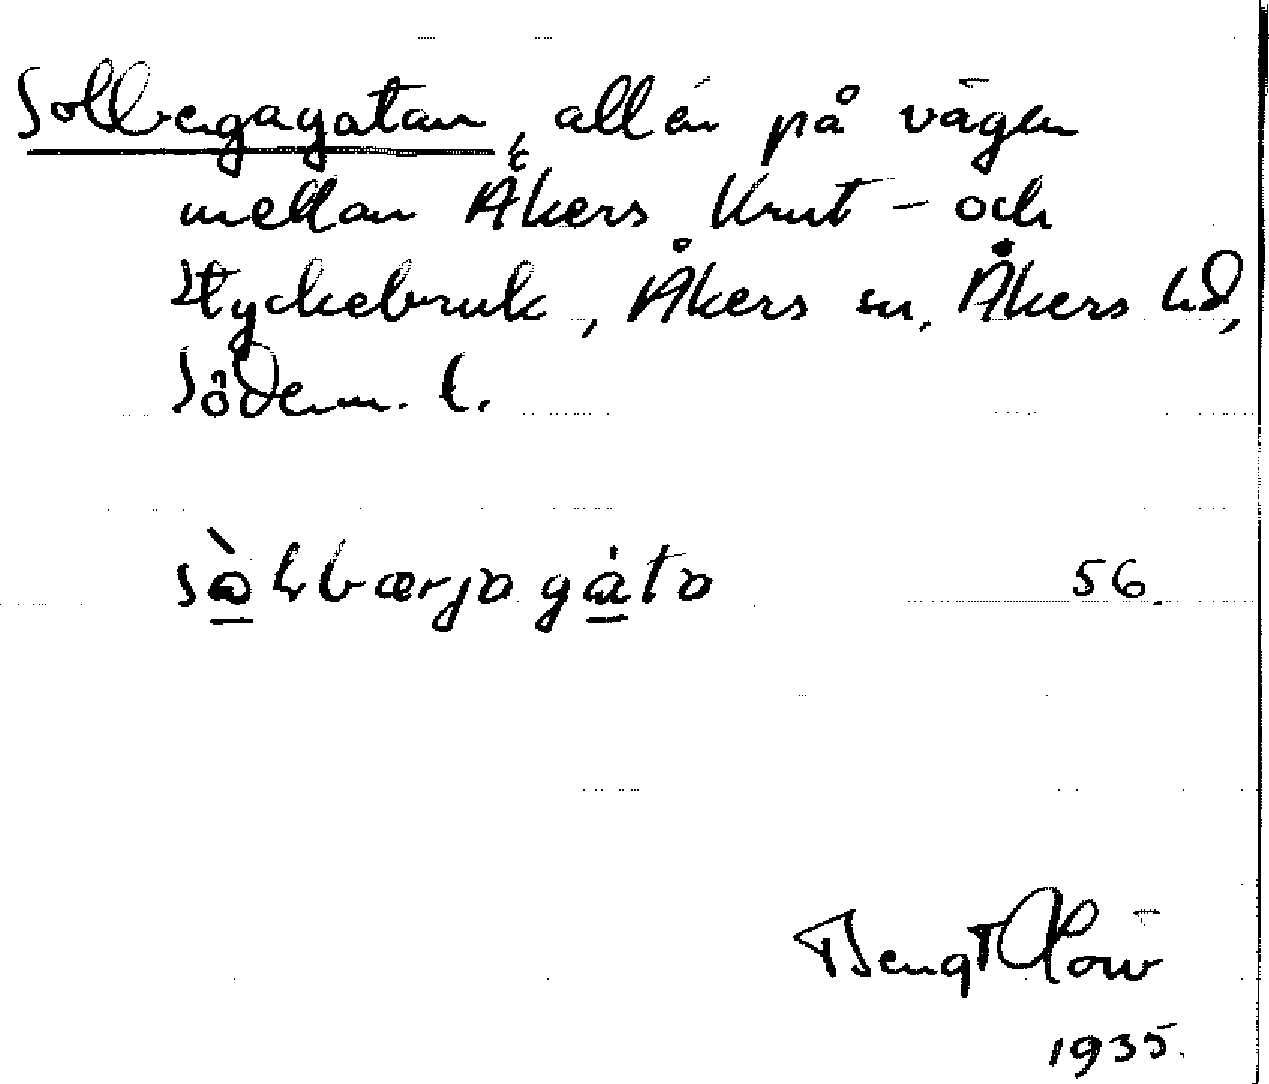 Solbergagatan, allén på vägen
mellan Åkers Krut- och
Styckebruk, Åkers sn, Åkers hd,
Söderm. l.
56.
Bengt
1935.